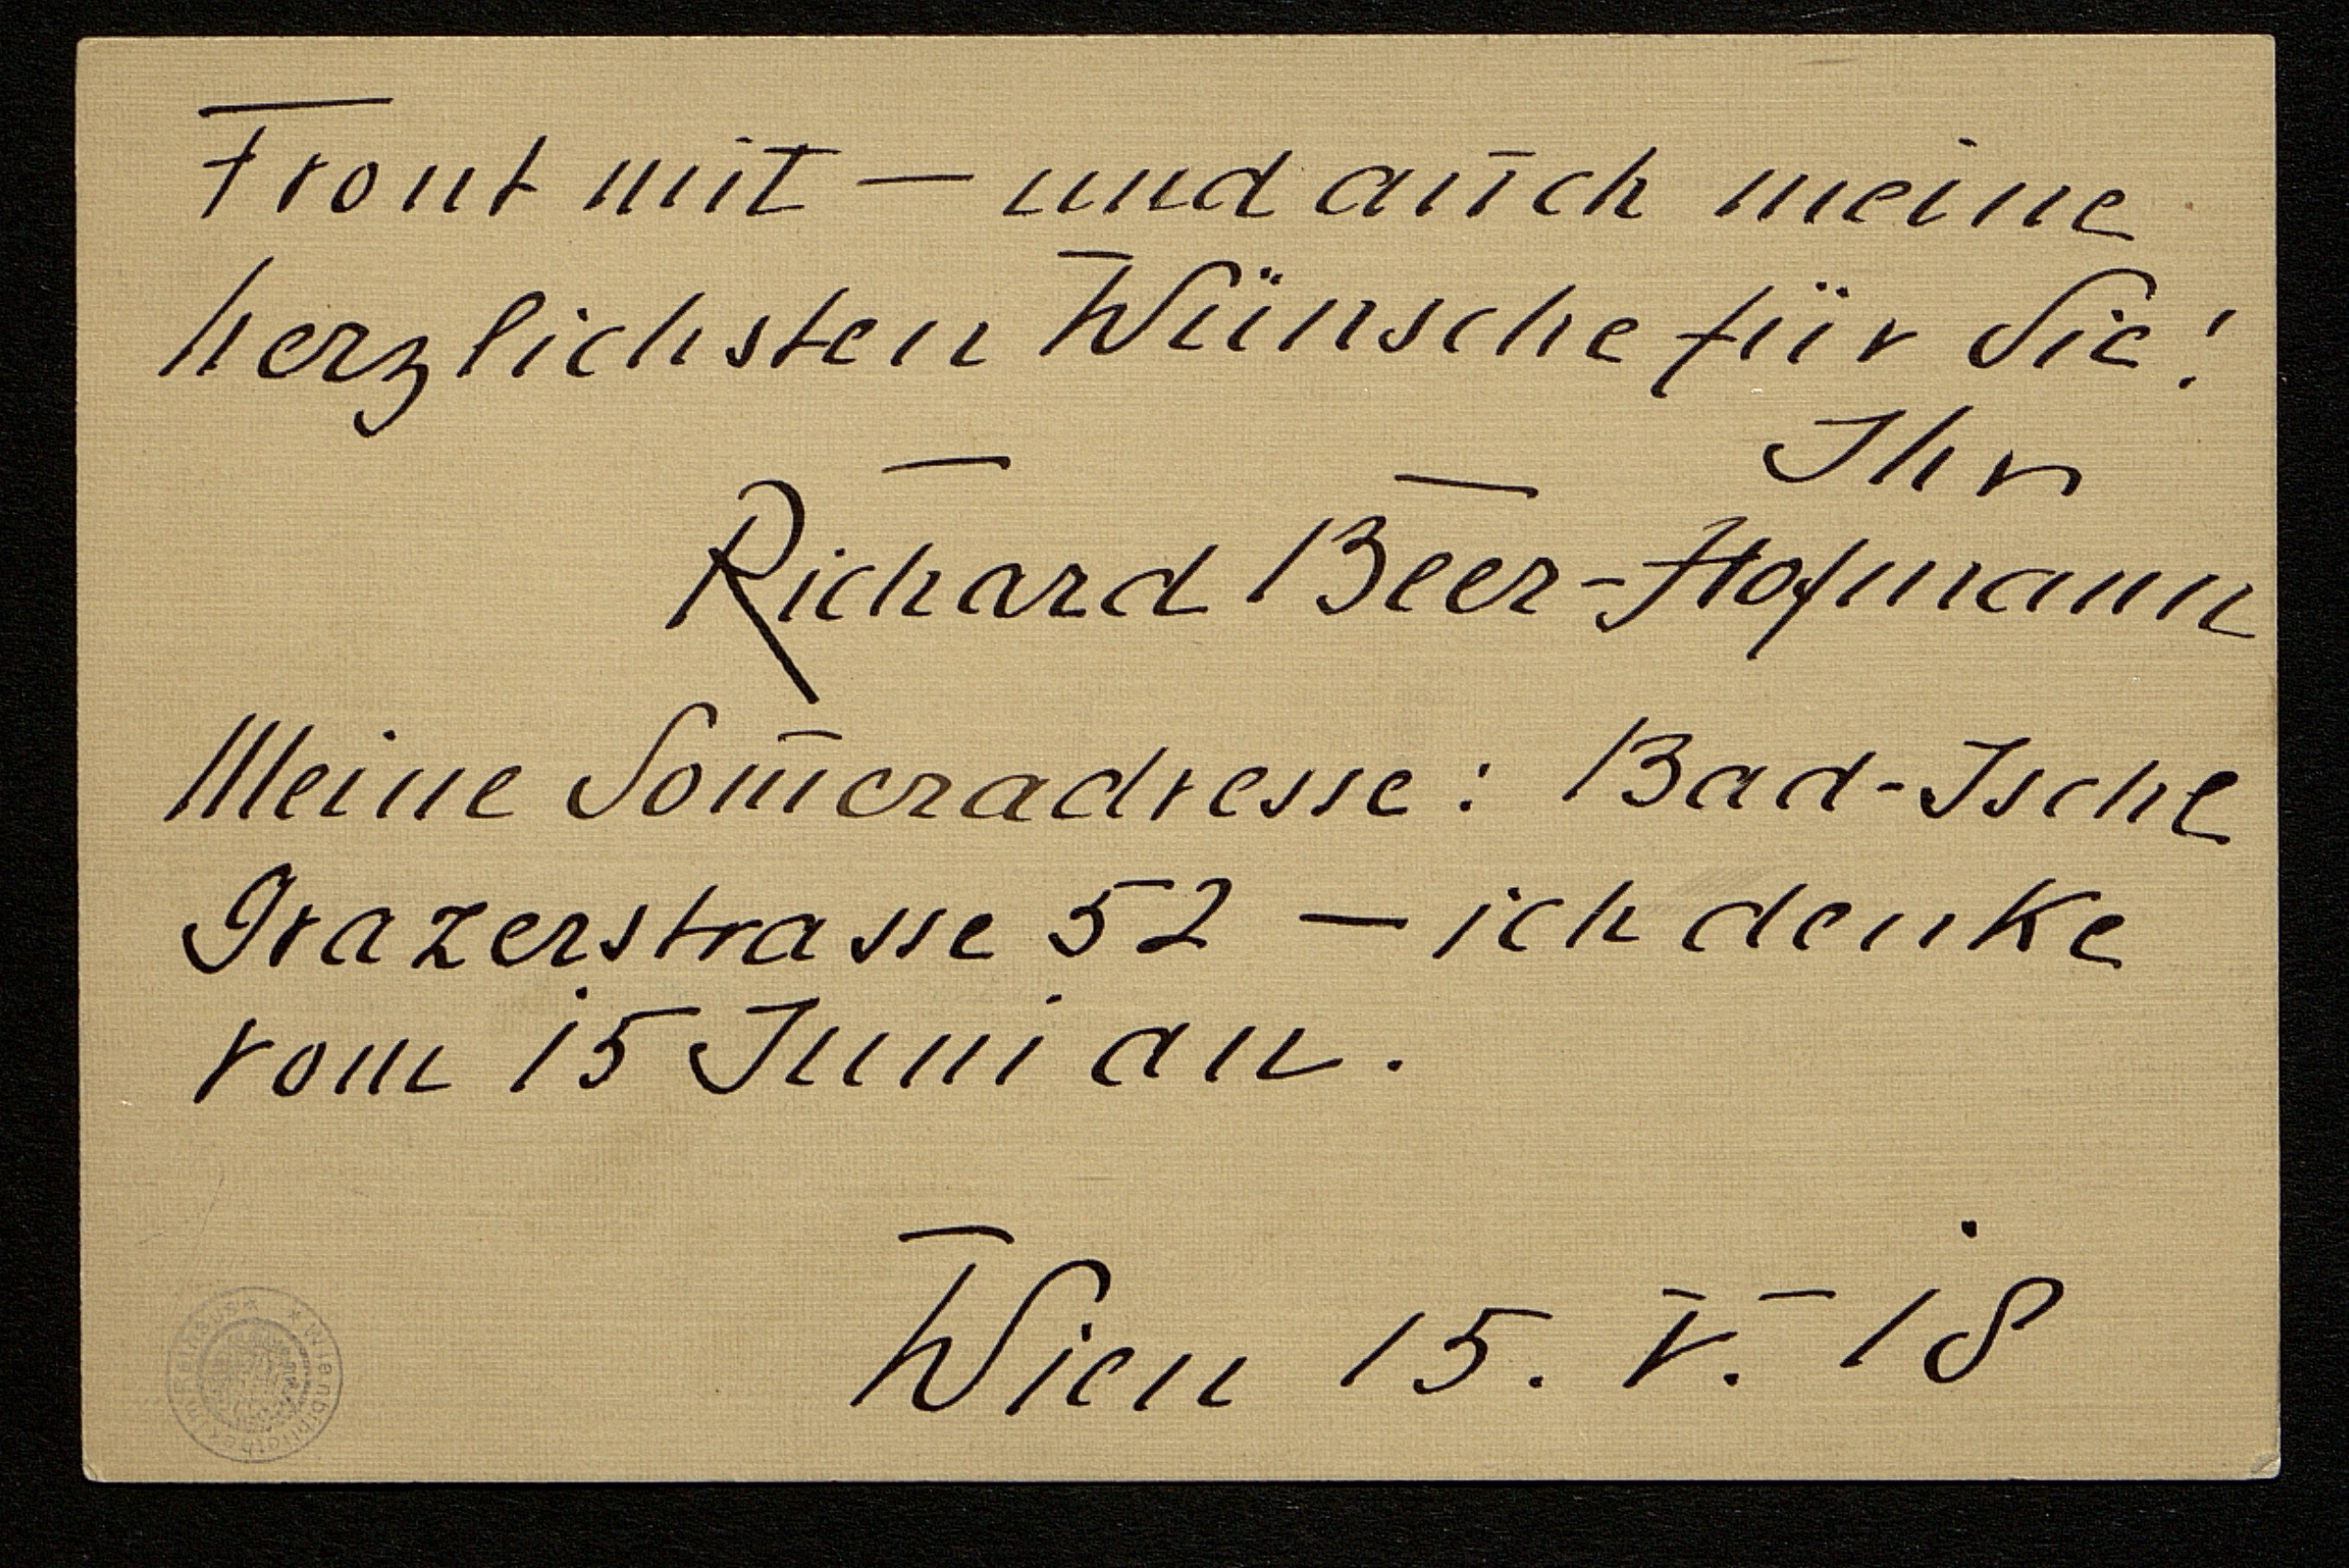 Front mit — und auch meine
herzlichsten Wünsche für Sie!
Ihr
Richard Beer-Hofmann
Meine Som̅eradresse: Bad-Ischl
Grazerstrasse 52 — ich denke
vom 15 Juni an.
Wien 15. V. 18
Wienbibliothek im Rathaus